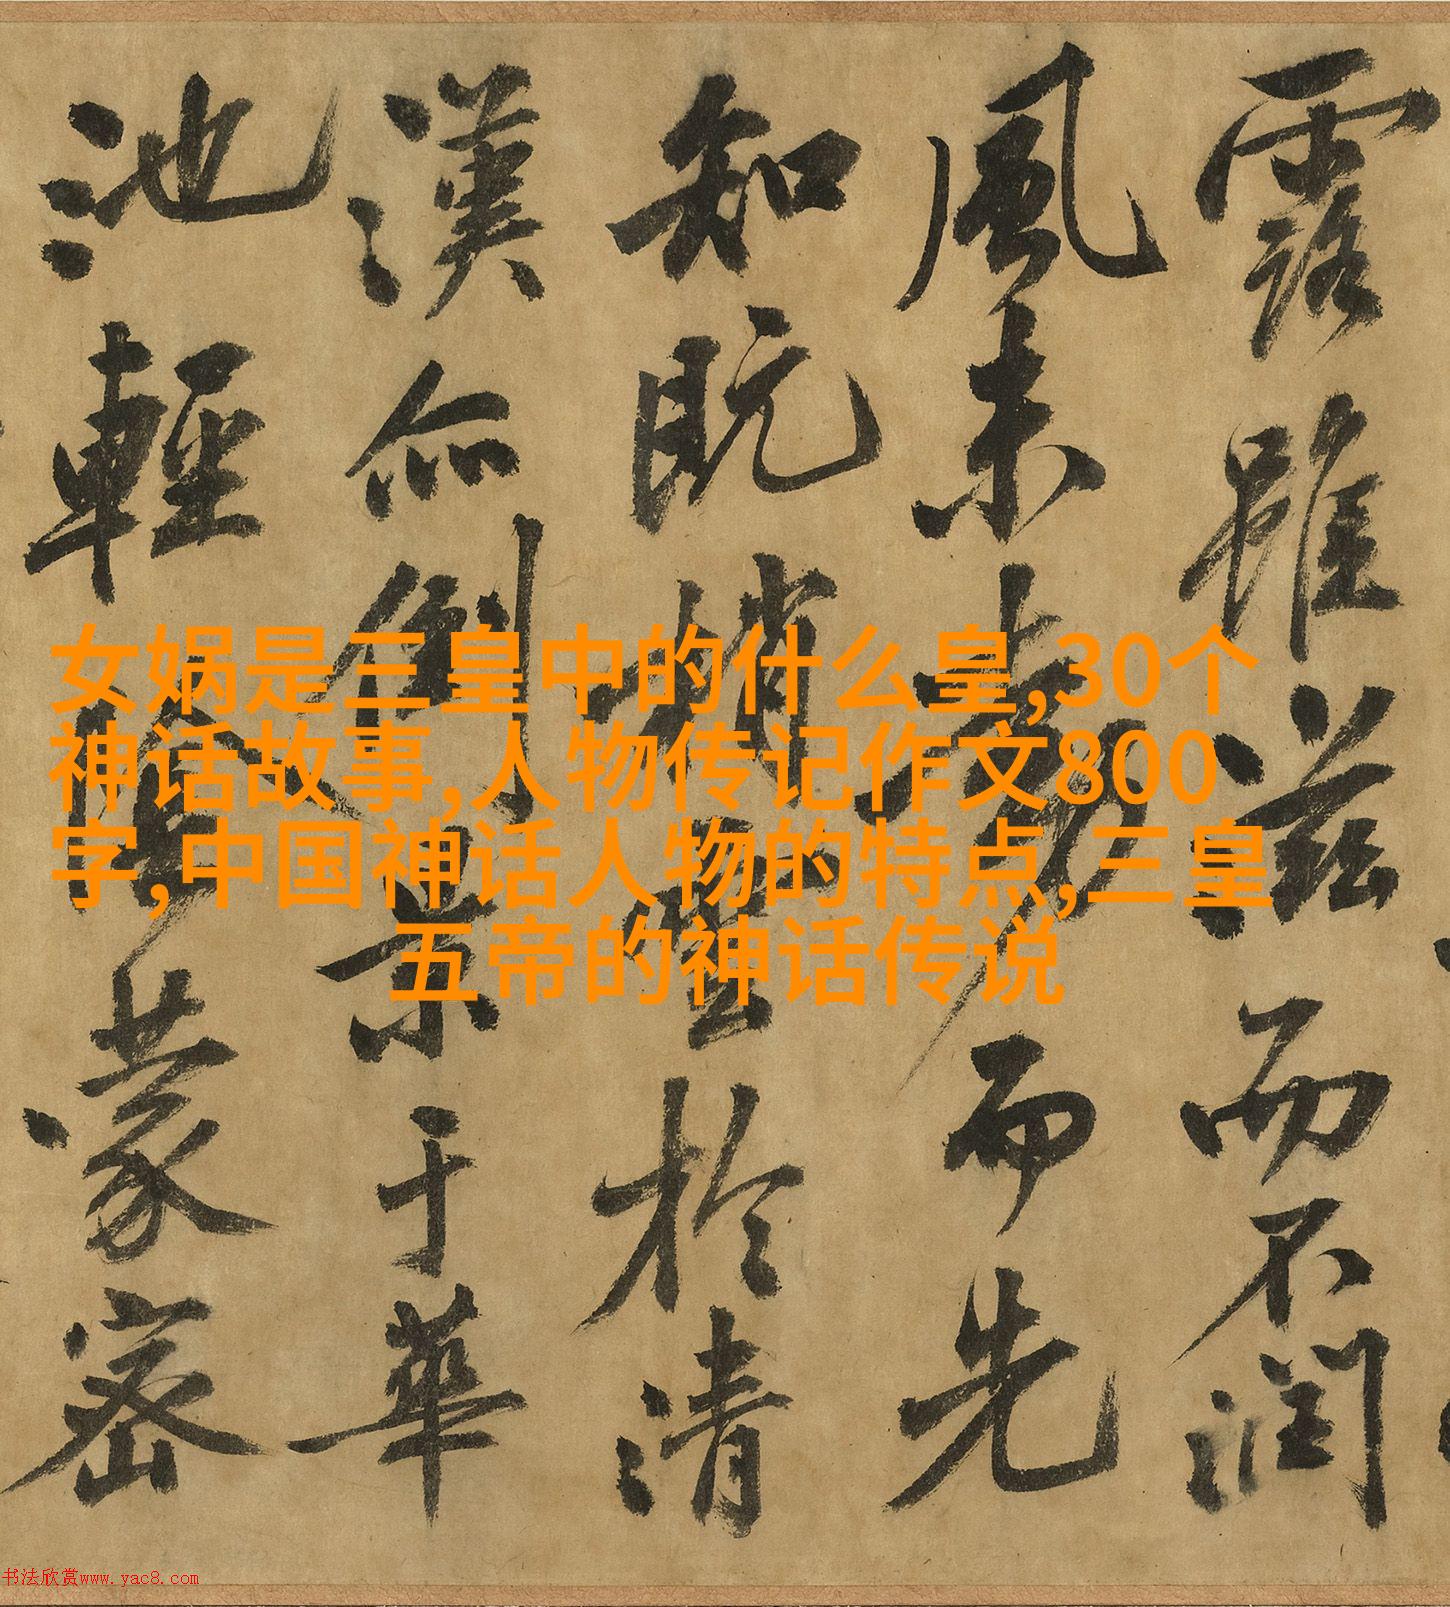 露雖滋而不潤
風未動而先
知既梢於清
漢亦倒景于華
池輕陰蒙密
女娲是三皇中的什么皇,30个
神话故事,人物传记作文800
字,中国神话人物的特点,三皇
五帝的神话传说
书法欣赏www.yac8.com